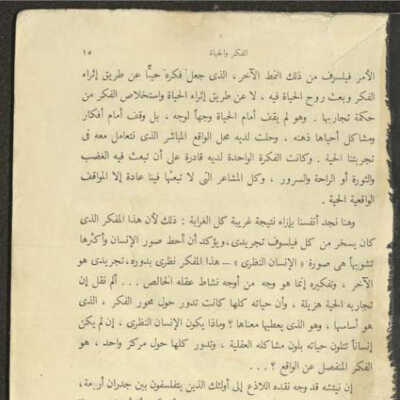 الفكر والحياة ١٥
الأمر فيلسوف من ذلك النمط الآخر ، الذى جعل فكره حيا عن طريق إثراء
الفكر وبعث روح الحياة فيه ، لا عن طريق إثراء الحياة واستخلاص الفكر من
حكمة تجاربها . وهو لم يقف أمام الحياة وجهاً لوجه ، بل وقف أمام أفكار
ومشاكل أحياها ذهنه . وحلت لديه محل الواقع المباشر الذى نتعامل معه فى
تجربتنا الحية . وكانت الفكرة الواحدة لديه قادرة على أن تبعث فيه الغضب
والثورة أو الراحة والسرور ، وكل المشاعر التى لا تبعثها فينا عادة إلا المواقف
الواقعية الحية .
وهنا نجد أنفسنا بإزاء نتيجة غريبة كل الغرابة : ذلك لأن هذا المفكر الذى
كان يسخر من كل فيلسوف تجريدى ، ويؤكد أن أحط صور الإنسان وأكثرها
تشويهاً هى صورة « الإنسان النظرى » – هذا المفكر نظرى بدوره ، تجريدى هو
الآخر ، وتفكيره إنما هو وجه من أوجه نشاط عقله الخالص . . . ألم نقل إن
تجاربه الحية هزيلة ، وأن حياته كلها كانت تدور حول محور الفكر ، الذى
هو أساسها ، وهو الذى يعطيها معناها ؟ وماذا يكون الإنسان النظرى ، إن لم يكن
إنساناً تتلون حياته بلون مشاكله العقلية ، وتدور كلها حول مركز واحد ، هو
الفكر المنفصل عن الواقع ؟ . . .
إن نيتشه قد وجه نقده اللاذع إلى أولئك الذين يتفلسفون بين جدران أربعة ،